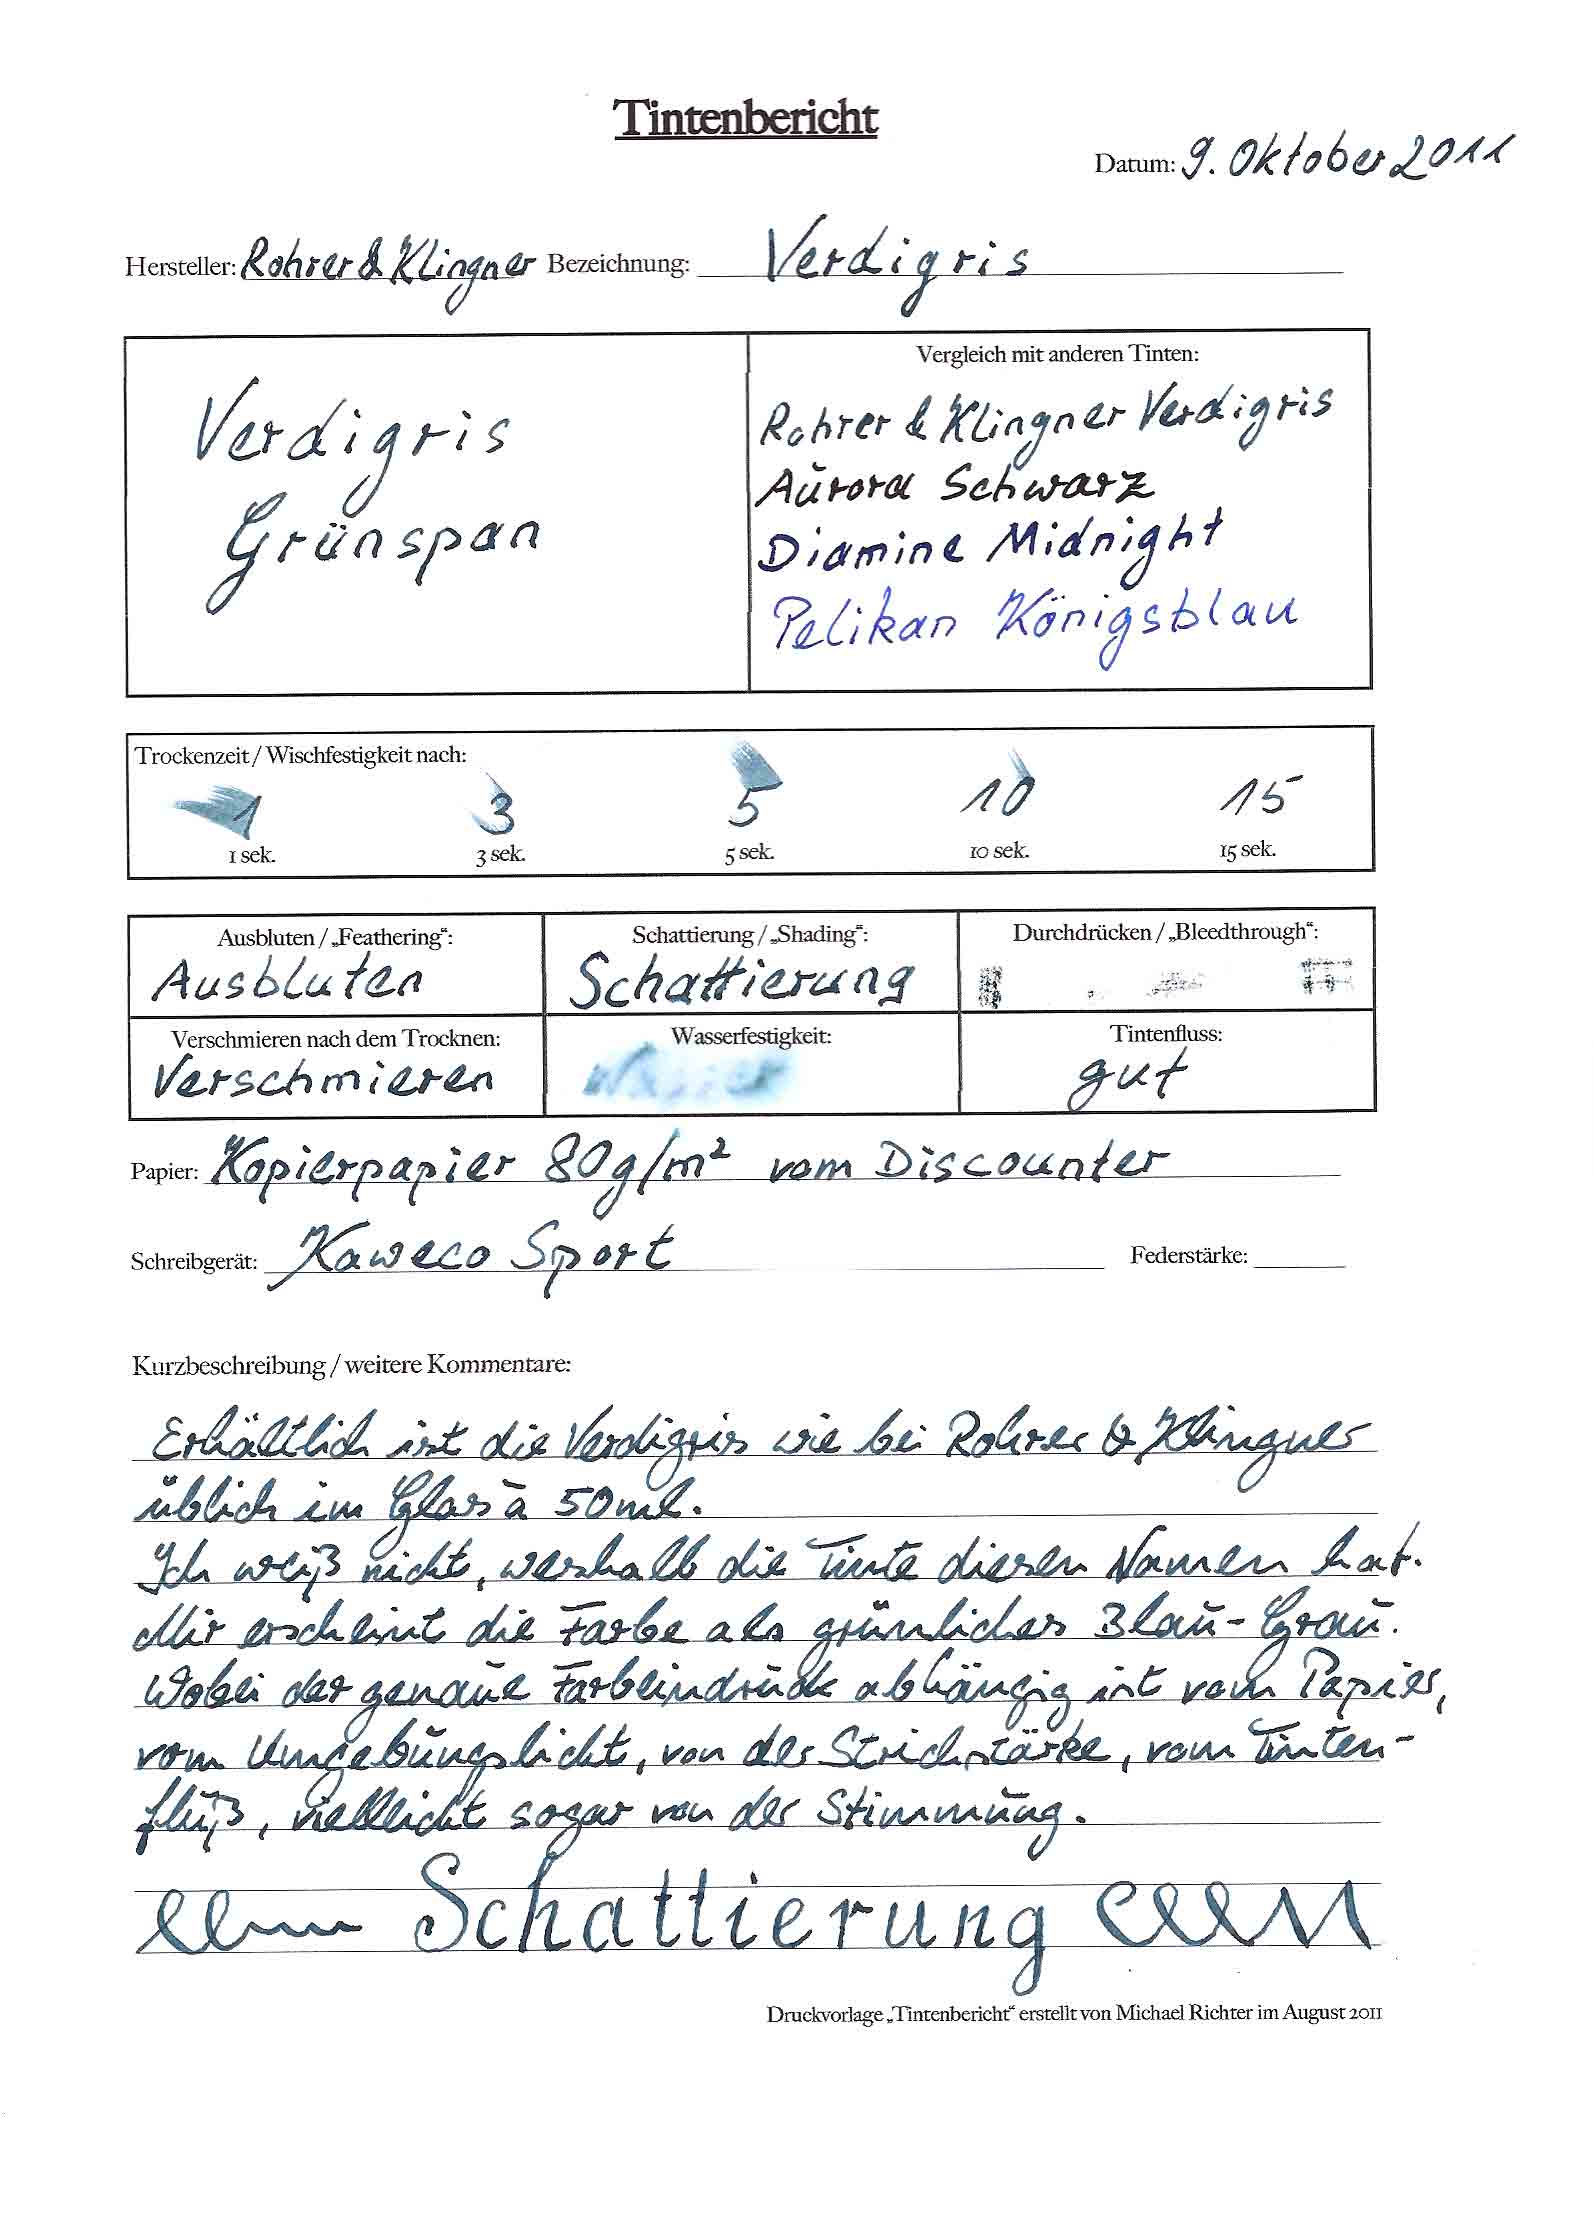 Tintenbericht
Datum: 9. Oktober 2011
Hersteller: Rohrer & Klingner Bezeichnung: Verdigris
Verdigris
Grünspan
Vergleich mit anderen Tinten:
Rohrer & Klingner Verdigris
Aurora Schwarz
Diamine Midnight
Pelikan Königsblau
Trockenzeit / Wischfestigkeit nach:
1 3 5 10 15
1 sek. 3 sek. 5 sek. 10 sek. 15 sek.
Ausbluten / „Feathering“: Schattierung / „Shading“: Durchdrücken / „Bleedthrough“:
Ausbluten Schattierung
Verschmieren nach dem Trocknen: Wasserfestigkeit: Tintenfluss:
Verschmieren Wasser gut
Papier: Kopierpapier 80g/m² vom Discounter
Schreibgerät: Kaweco Sport Federstärke:
Kurzbeschreibung / weitere Kommentare:
Erhältlich ist die Verdigris wie bei Rohrer & Klingner
üblich im Glas à 50ml.
Ich weiß nicht, weshalb die Tinte diesen Namen hat.
Mir erscheint die Farbe als grünliches Blau-Grau.
Wobei der genaue Farbeindruck abhängig ist vom Papier,
vom Umgebungslicht, von der Strichstärke, vom Tinten-
fluß, vielleicht sogar von der Stimmung.
Schattierung
Druckvorlage „Tintenbericht“ erstellt von Michael Richter im August 2011